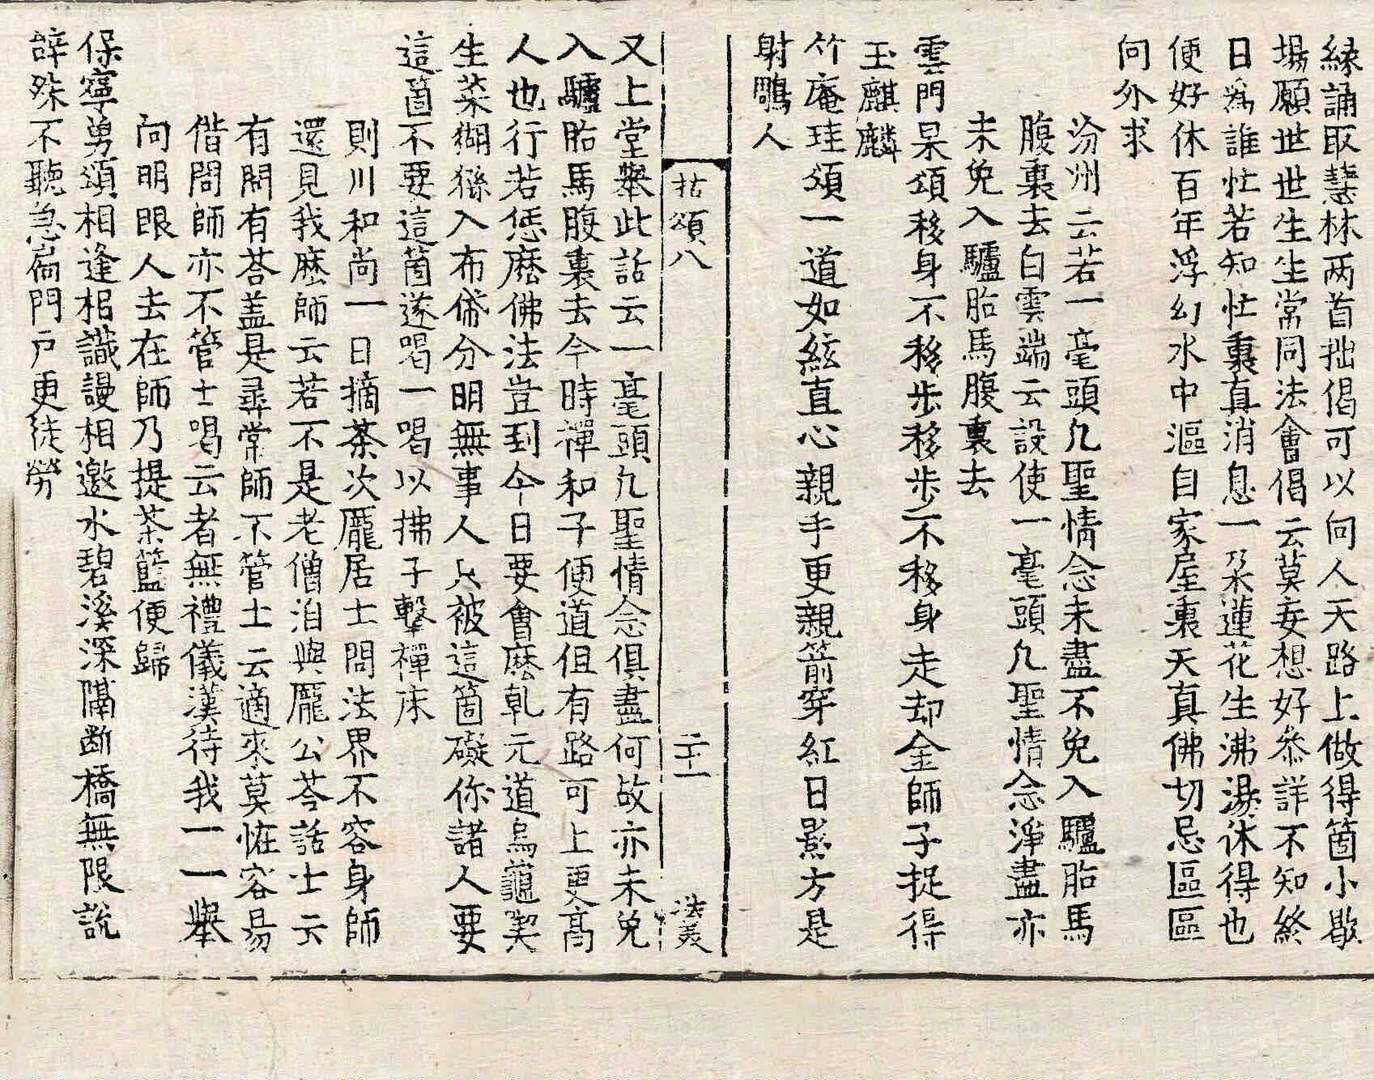 緣誦取慧林两首拙偈可以向人天路上做得箇小歇
場願世世生生常同法會偈云莫妄想好叅詳不知終
日爲誰忙若知忙裏真消息一朶蓮花生沸湯休得也
便好休百年浮幻水中漚自家屋裏天真佛切忌區區
向外求
汾州云若一毫頭凢聖情念未盡不免入驢胎馬
腹裏去白雲端云設使一毫頭凢聖情念淨盡亦
未免入驢胎馬腹裏去
雲門杲頌移身不移步移步不移身走却金師子捉得
玉麒麟
竹庵珪頌一道如絃直心親手更親箭穿紅日影方是
射鵰人
拈頌八 二十一 法羙
又上堂舉此話云一毫頭凢聖情念俱盡何故亦未免
入驢胎馬腹裏去今時禪和子便道但有路可上更髙
人也行若恁麽佛法豈到今日要會麽乹元道烏龜喫
生菜猢猻入布帒分明無事人只被這箇礙你諸人要
這箇不要這箇遂喝一喝以拂子擊禪床
則川和尚一日摘茶次龐居士問法界不容身師
還見我麽師云若不是老僧洎與龐公荅話士云
有問有荅盖是尋常師不管士云適來莫恠容易
借問師亦不管士喝云者無禮儀漢待我一一舉
向明眼人去在師乃提茶籃便歸
保寧勇頌相逢相識謾相邀水碧溪深隔断橋無限說
辝殊不聽急扄門戸更徒勞